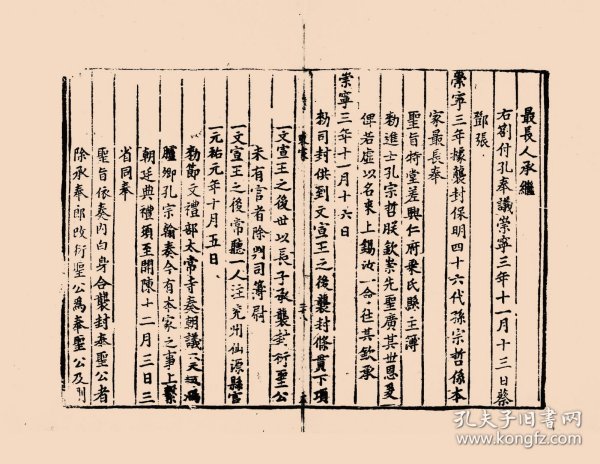 最長人承繼
右劄付孔奉議崇寧三年十一月十三日蔡
鄧張
崇寧三年據襲封保明四十六代孫宗哲係本
家最長奉
聖旨特堂差興仁府乘氏縣主簿
勑進士孔宗哲朕欽崇先聖廣其世恩爰
俾若虛以名來上錫汝一合往其欽承
崇寧三年十一月十六日
勑司封供到文宣王之後襲封條貫下項
一文宣王之後世以長子承襲封衍聖公
未有言者除州司簿尉
一文宣王之後常聽一人注兖州仙源縣官
一元祐元年十月五日
勑節文禮部太常寺奏朝議大夫
臚卿孔宗翰奏今有本家之事上繫
朝廷典禮須至開陳十二月三日三
省同奉
聖旨依奏内白身合襲封奉聖公者
除承奉郎改衍聖公爲奉聖公及
孔夫子旧书网
www.kongfz.com